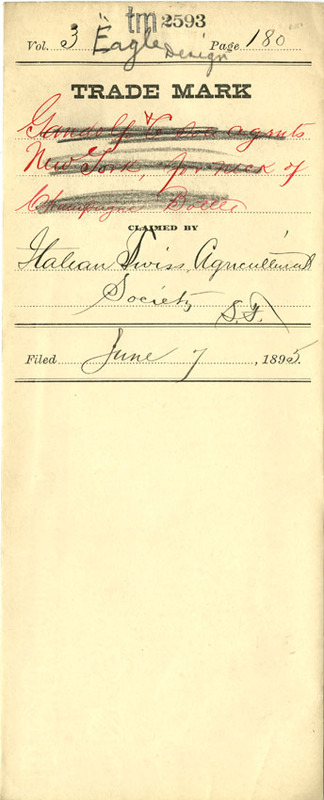 tm 2593
Vol. 3 "Eagle Design Page 180
TRADE MARK
Gandolfi & Co sole agents
New York, for neck of
Champagne Bottle
CLAIMED BY
Italian Swiss Agricultural
Society S.F.
Filed June 7, 1895.